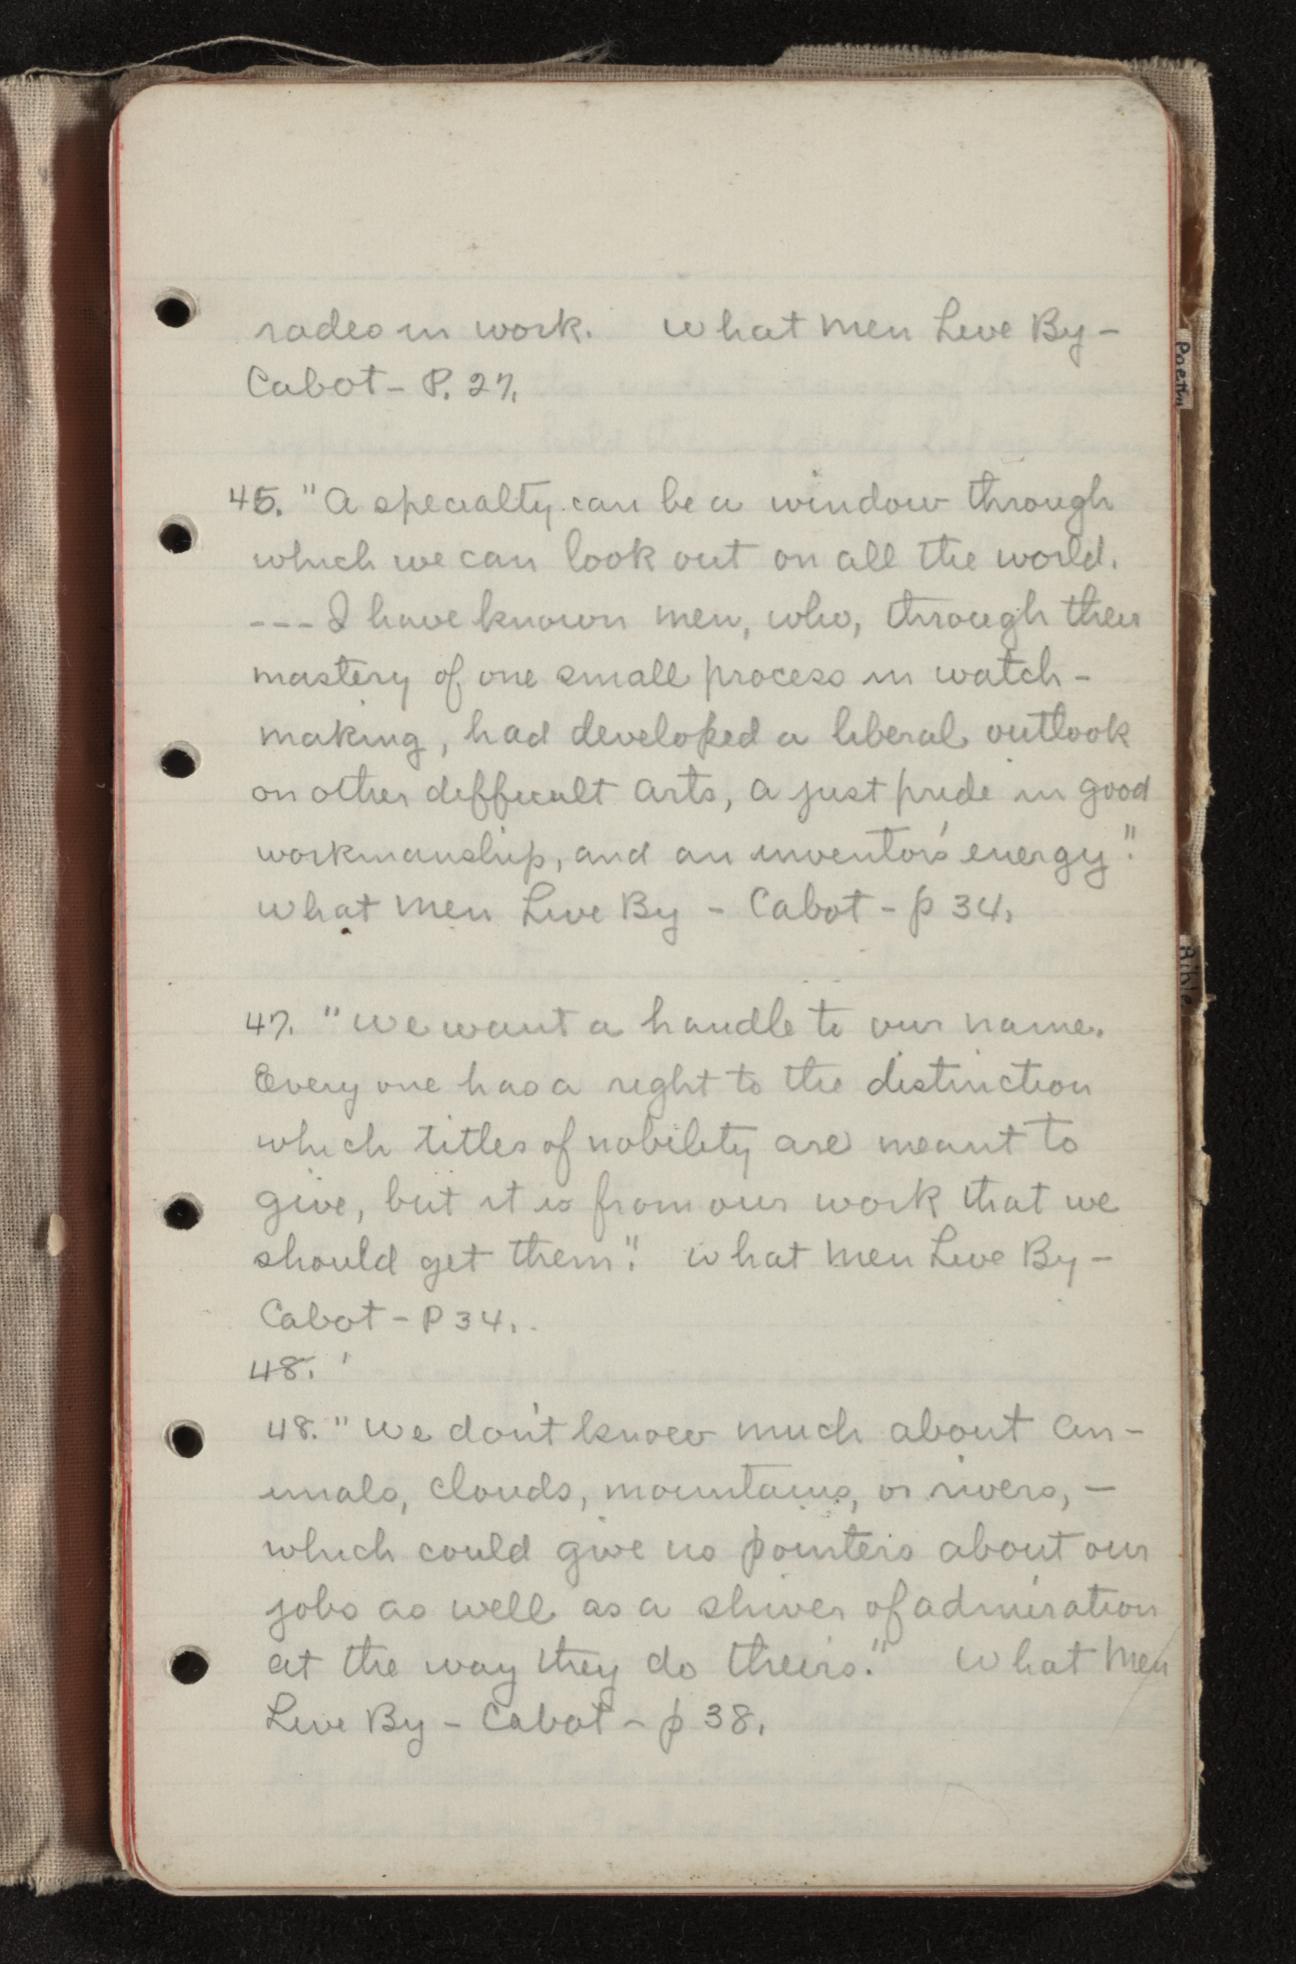 rades in work. What Men Live By -
Cabot - P. 27.
45. "A specialty can be a window through
which we can look out on all the world.
--- I have known men, who, through their
mastery of one small process in watch-
making, had developed a liberal outlook
on other difficult arts, a just pride in good
workmanship, and an inventor's energy."
What Men Live By - Cabot - p 34.
47. "We want a handle to our name.
Every one has a right to the distinction
which titles of nobility are meant to
give, but it is from our work that we
should get them." What Men Live By -
Cabot - P 34.
48. '
48. "We don't know much about an-
imals, clouds, mountains, or rivers, -
which could give us pointers about our
jobs as well as a shiver of admiration
at the way they do theirs." What Men
Live By - Cabot - p 38.
Poetry
Bible